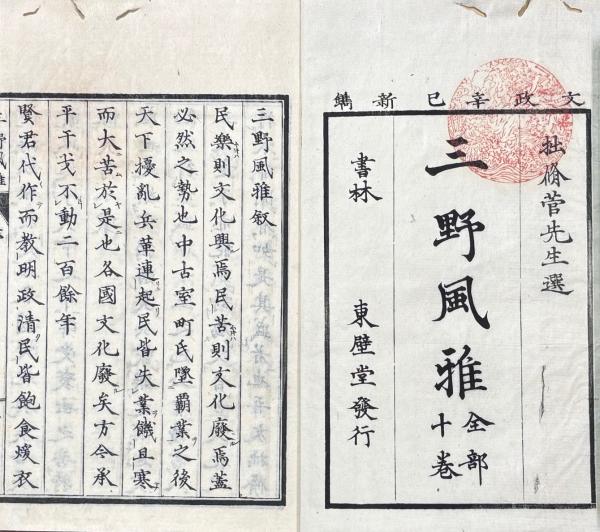 文政辛巳新鐫
拙脩菅先生選
三野風雅 全部十卷
書林 東壁堂發行
三野風雅叙
民樂則文化興焉民苦則文化廢焉蓋
必然之勢也中古室町氏墜覇業之後
天下擾亂兵革連起民皆失業饑且寒
而大苦於是也各國文化廢矣方今承
平干戈不動二百餘年
賢君代作而教明政清民皆飽食煖衣
三野風雅